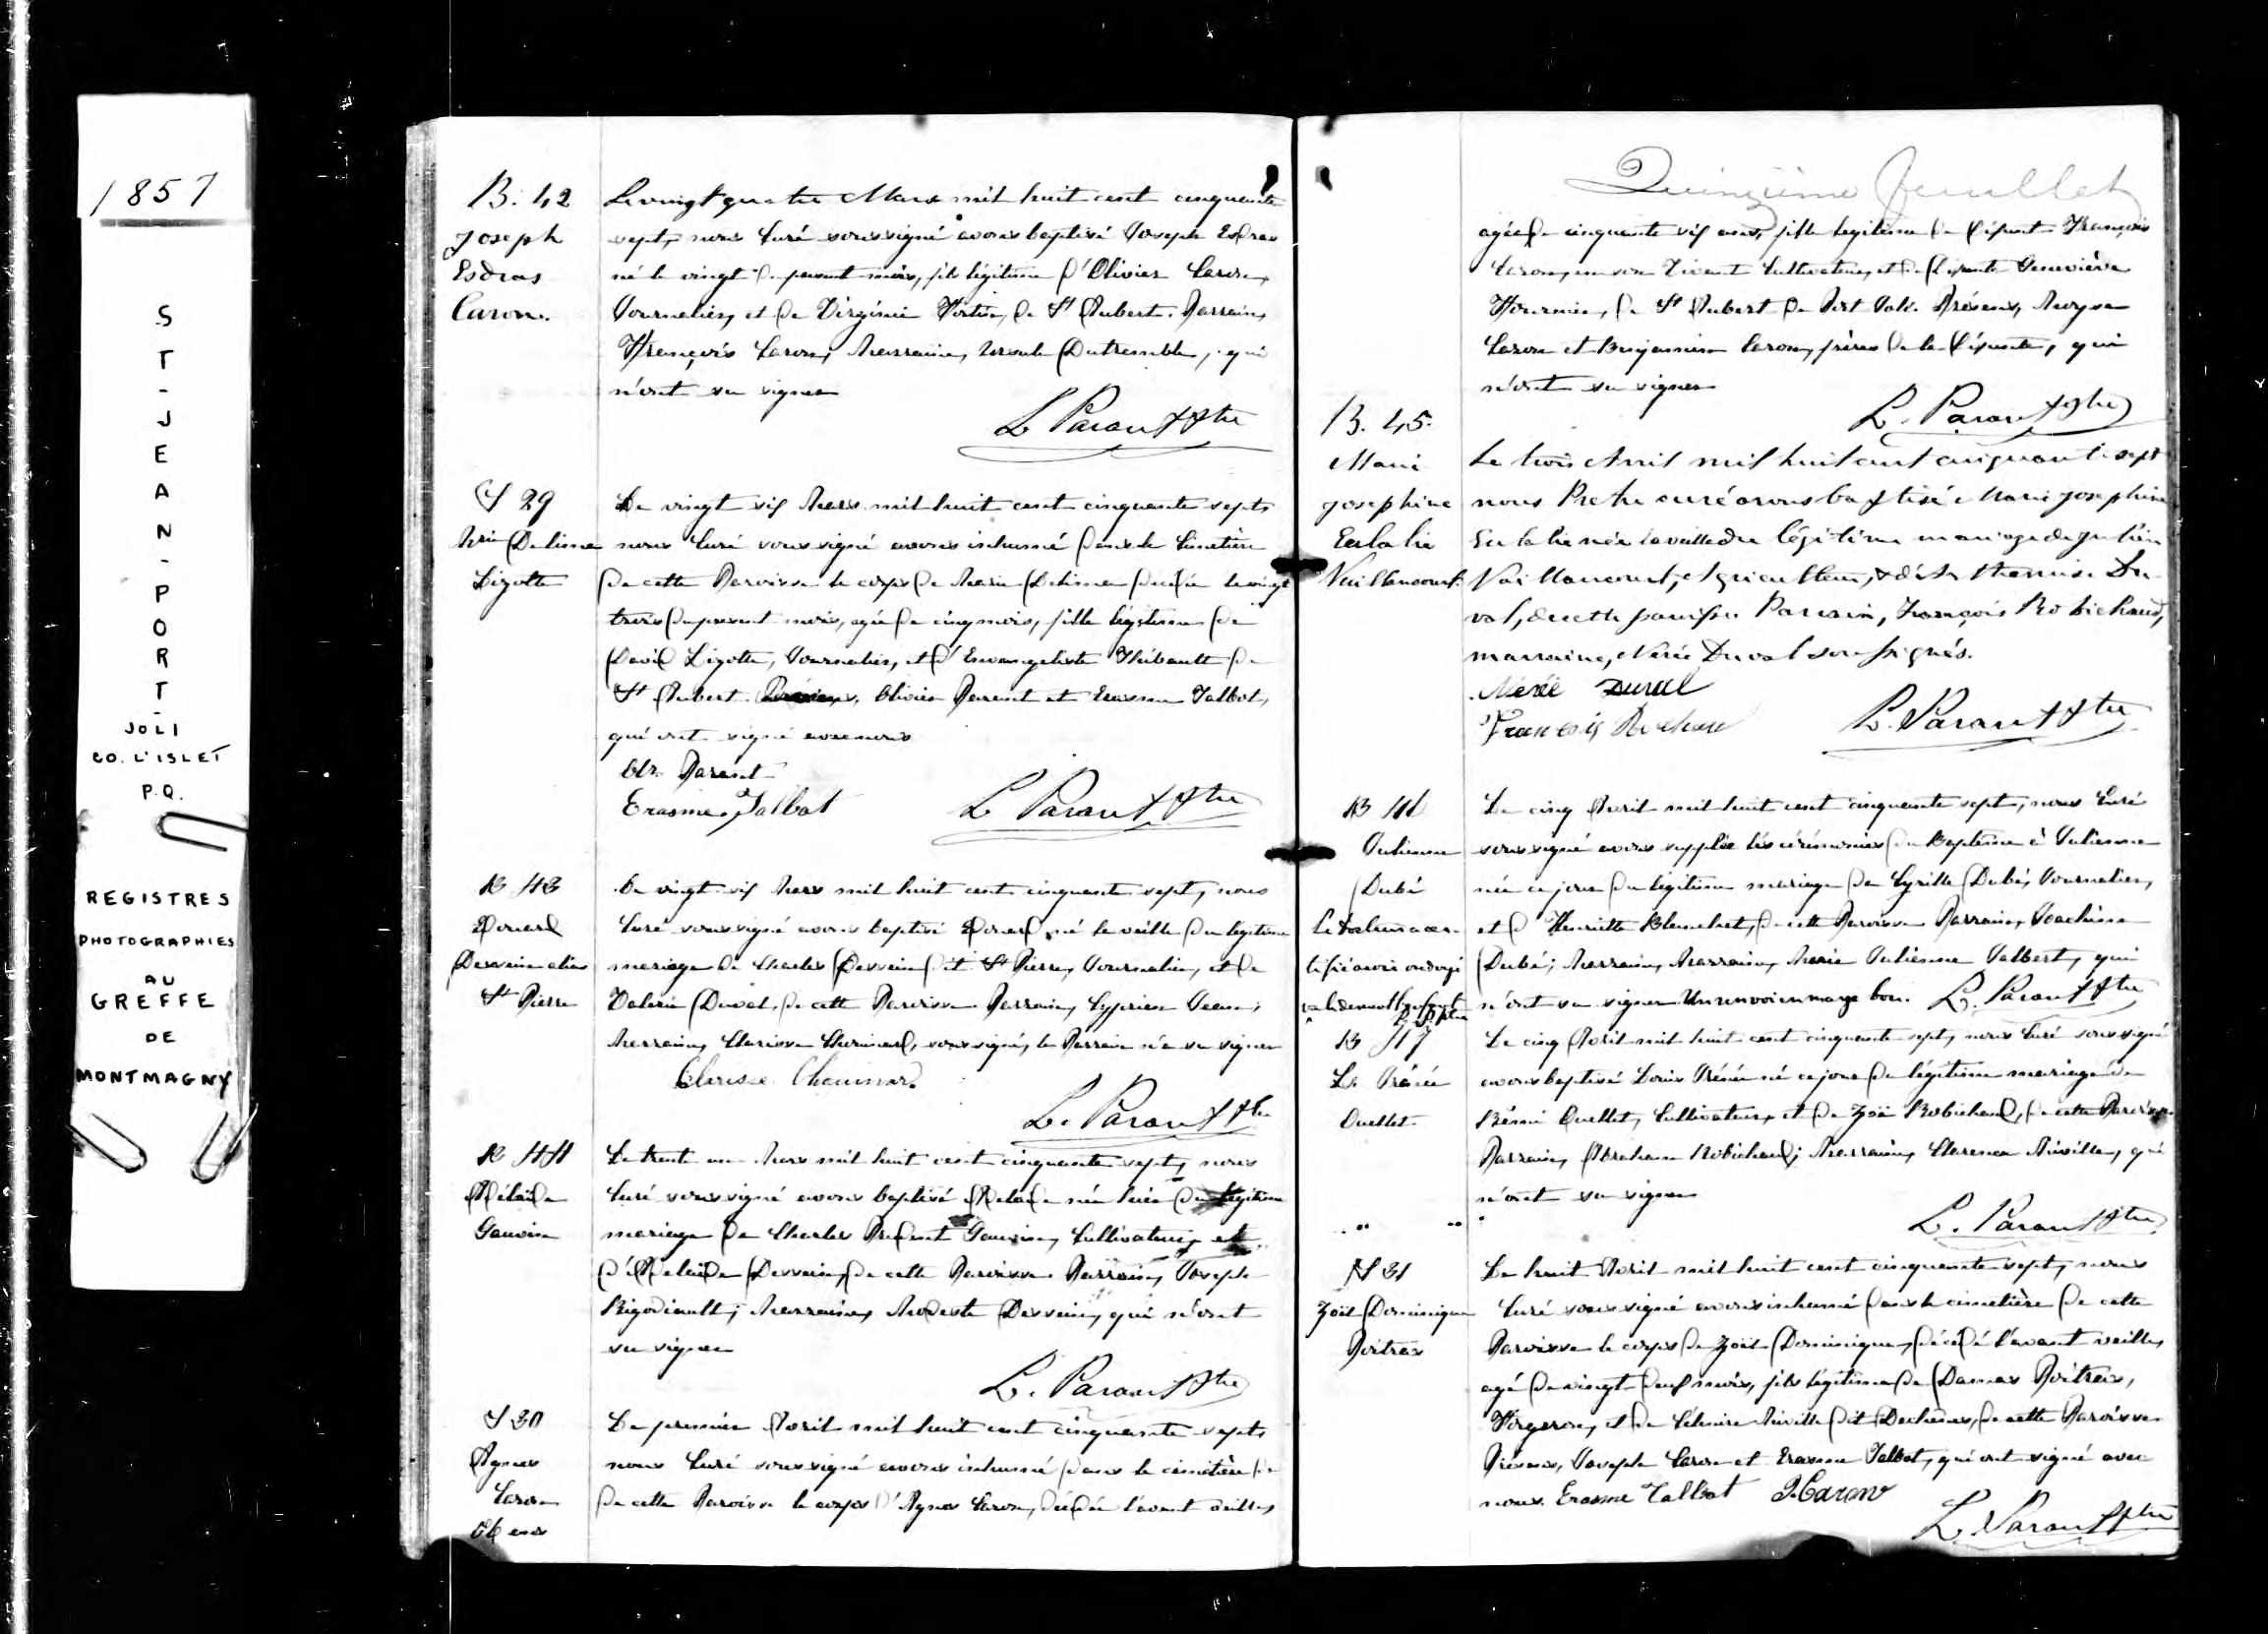 1857
ST-JEAN-PORT-
JOLI
CO. L'ISLET
P.Q.
REGISTRES
PHOTOGRAPHIES
AU
GREFFE
DE
MONTMAGNY
B. 42
Joseph
Esdras
Caron.
Le vingt quatre Mars mil huit cent cinquante
sept, nous Curé soussigné avons baptisé Joseph Esdras
né le vingt du present mois, fils légitime d'Olivier Caron,
Journalier, et de Virginie Fortin, de St Aubert. Parrain,
François Caron, Marraine, Ursule Dutremble, qui
n'ont su signer
L Parant Ptre
S 29
Mrie Delima
Lizotte
Le vingt six Mars mil huit cent cinquante sept,
nous Curé soussigné avons inhumé dans le Cimetière
de cette Paroisse le corps de Marie Delima décédée le vingt
trois du present mois, agée de cinq mois, fille légitime de
David Lizotte, Journalier, et d'Evangeliste Thibault de
St Aubert. Présens, Olivier Parent et Erasme Talbot,
qui ont signé avec nous
Olr. Parent
Erasme Talbot
L Parant Ptre
B 43
Edouard
Desveine alias
St Pierre
Le vingt six Mars mil huit cent cinquante sept, nous
Curé soussigné avons baptisé né la veille du légitime
mariage de Charles Desvein dit St Pierre, Journalier, et de
Valerie Duval, de cette Paroisse. Parrain, Cyprien Jean,
Marraine, Clarisse Chouinard, soussigné, le Parrain n'a su signer
Clarisse Chouinard
L. Parant Ptre
B 44
Adélaïde
Gauvin
Le trente un Mars mil huit cent cinquante sept, nous
Curé soussigné avons baptisé Adelaïde née hier du légitime
mariage de Charles Gauvin, Cultivateur, et
d'Adelaïde Desvein, de cette Paroisse. Parrain, Joseph
Rigodiault; Marraine, Modeste Desvein, qui n'ont
su signer
L. Parant Ptre
S 30
Agnes
Caron
56 ans
Le premier Avril mil huit cent cinquante sept,
nous Curé soussigné avons inhumé dans le cimetière de
de cette Paroisse le corps d'Agnes Caron, décédée l'avant veille,
Quinzième feuillet
agée de cinquante six ans, fille légitime de défunt François
Caron, en son vivant Cultivateur, et de défunte Geneviève
Fournier, de St Aubert de Port Joli. Présens,
Caron et Benjamin Caron, frères de la défunte, qui
n'ont su signer
L. Parant Ptre
B. 45.
Marie
Josephine
Eulalie
Vaillancourt.
Le trois Avril mil huit cent cinquante sept
nous Prêtre curé avons baptisé Marie Josephine
Eulalie née la veille du légitime mariage de Julien
Vaillancourt, Agriculteur, & d'Arthemise Du-
val, de cette paroisse Parrain, François Robichaud,
marraine, Nérée Duval soussignés.
Nerée Duval
François
L. Parant Ptre
B 46
Julienne
Dubé
Le cinq Avril mil huit cent cinquante sept, nous Curé
soussigné avons supplée les cérémonies du Baptême à Julienne
née ce jour du légitime mariage de Cyrille Dubé, Journalier,
et d'Henriette Blanchet, de cette Paroisse Parrain, Joachim
Dubé; Marraine, Marraine, Marie Julienne Talbert, qui
n'ont su signer Un renvoi en marge bon. L. Parant Ptre
B 47
Ls Trénée
Ouellet
Le cinq Avril mil huit cent cinquante sept, nous Curé soussigné
avons baptisé Louis né ce jour du légitime mariage de
Rémi Ouellet, Cultivateur, et de Zoé Robichaud, de cette Paroisse
Parrain, Abraham Robichaud; Marraine, Clarence Miville, qui
n'ont su signer
L. Parant Ptre
S 31
Zoël Dominique
Poitras
Le huit Avril mil huit cent cinquante sept, nous
Curé soussigné avons inhumé dans le cimetière de cette
Paroisse le corps de Zoël Dominique, décédé l'avant veille,
agé de vingt deux mois, fils légitime de Damas Poitras,
Forgeron, et de Miville dit Dechene, de cette Paroisse
Présens, Joseph Caron et Erasme Talbot, qui ont signé avec
nous. Erasme Talbot J. Caron
L. Parant Ptre